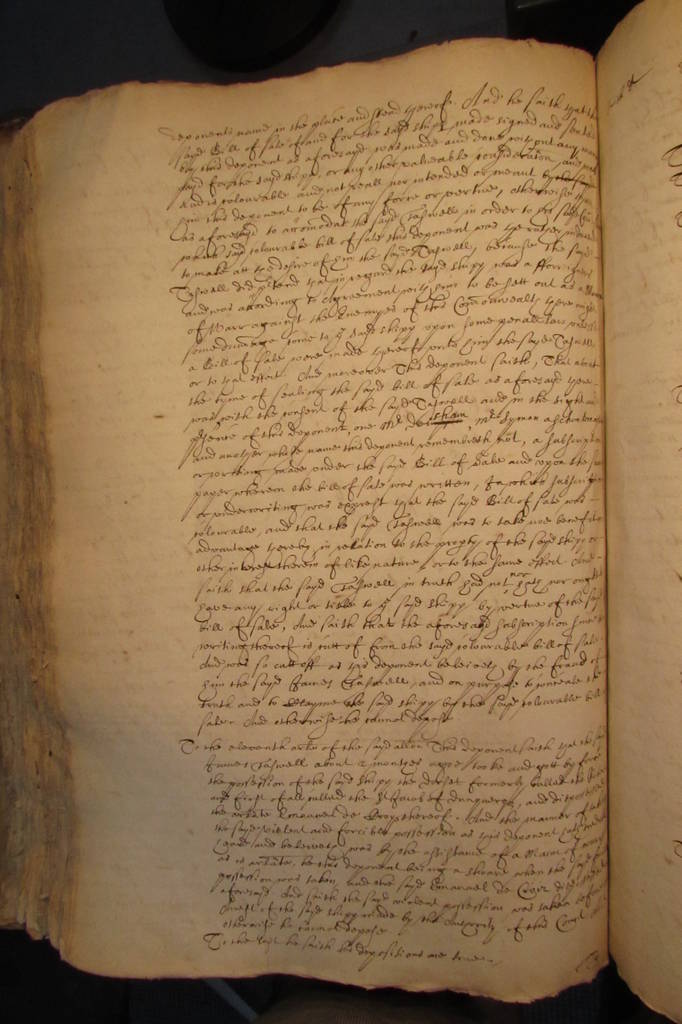 deponents name in the place and stead thereof. And he saith that the
sayd Bill of sale of and for the sayd shipp made signed and sealed
by this deponent as aforesayd was made and done without any
payd for the sayd shipp or any other valueable consideration, and
and is colourable and not reall nor intended or meant by the
him this deponent to be of any force or vertue, otherwise
as aforesayd to accomodat the sayd Taswell in order to
which sayd colourable bill of sale this deponent was the rather
to make att the desire of him the sayd Taswell, because the sayd
Taswell did pretend that in regard the sayd shipp was a fforreigner
and was according to Agreement with him to be sett out as a
of Warr against the Enemyes of this Commonwealth there might
some dammage come to the sayd shipp upon some penall law
a Bill of sale were made thereof unto him the sayd Taswell
or to that effect. And moreover this deponent saith, That about
the tyme of sealing the sayd bill of sale as aforesayd there
was with the consent of the sayd Taswell and in the sight and
presence of this deponent, one Mr
and another whose name this deponent remembreth not, a subscription
or writing made under the sayd Bill of Sale and upon the
paper wherein the bill of sale was written, In which subscription
or underwriting was exprest that the sayd Bill of sale was
colourable, and that the sayd Taswell was to take noe benefitt or
advantage thereby in relation to the propty of the sayd shipp or
other interest therein of like nature, or to the same effect. And
saith that the sayd Taswell in truth had not nor hath nor ought
have any right or title to the sayd shipp by vertue of the sayd
bill of sale, And saith that the aforesayd subscription
writing thereof is cutt of from the sayd colourable bill of sale
And was so cutt off as this deponent beleiveth by the fraud of
him the sayd James Taswell, and on purpose to conceale the
truth and to Clayme the said shipp by the sayd colourable bill
sale. And otherwise he cannot depose
To the eleventh arle of the sayd allon This deponent saith that the sayd
James Taswell about 2 monthes agoe, tooke and gott by force
the possession of the sayd shipp the formerly called the
and first of all called the St Jacob of Dunquerque, and dispossessed
the arlate Emanuel de Croix thereof. And the manner of
the sayd violent and forcible possession as this deponent hath
and beleiveth was by the assistance of a
as is arlate, he this deponent being a shoare when the sayd
possession was taken, and the sayd Emanuel de Croix
aforesayd And saith the sayd violent possession was taken before
Arrest of the sayd shipp made by the Authority of this Court
otherwise he cannot depose
To the last he saith his depositions are true